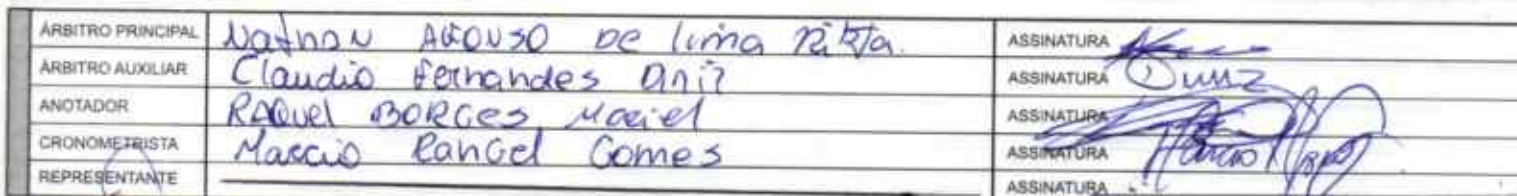 ÁRBITRO PRINCIPAL Nathan AFONSO De lima ASSINATURA
ÁRBITRO AUXILIAR Claudio Fernandes ASSINATURA
ANOTADOR RAQUEL BORGES Maciel ASSINATURA
CRONOMETRISTA Marcio RanGel Gomes ASSINATURA
REPRESENTANTE ASSINATURA